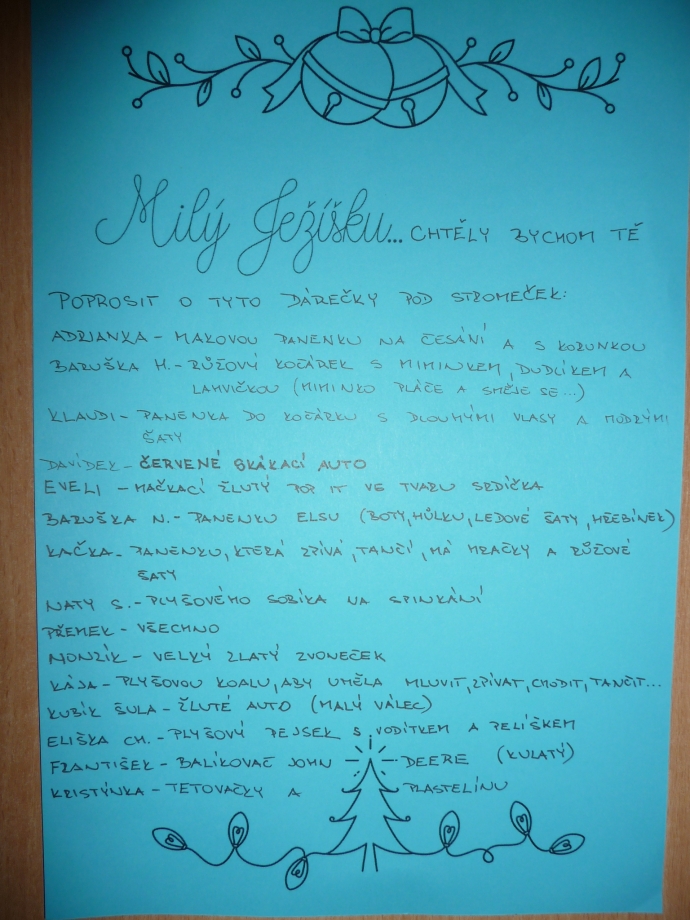 Milý Ježíšku... CHTĚLY BYCHOM TĚ
POPROSIT O TYTO DÁREČKY POD STROMEČEK:
ADRIANKA - MAKOVOU PANENKU NA ČESÁNÍ A S KORUNKOU
BARUŠKA H. - RŮŽOVÝ KOČÁREK S MIMINKEM, DUDLÍKEM A
LAHVIČKOU (MIMINKO PLÁČE A SMĚJE SE...)
KLAUDI - PANENKA DO KOČÁRKU S DLOUHÝMI VLASY A MODRÝMI
ŠATY
DAVÍDEK - ČERVENÉ SKÁKACÍ AUTO
EVELI - MAČKACÍ ŽLUTÝ POP IT VE TVARU SRDÍČKA
BARUŠKA N. - PANENKU ELSU (BOTY, HŮLKU, LEDOVÉ ŠATY, HŘEBÍNEK)
KAČKA - PANENKU, KTERÁ ZPÍVÁ, TANČÍ, MÁ HRAČKY A RŮŽOVÉ
ŠATY
NATY S. - PLYŠOVÉHO SOBÍKA NA SPINKÁNÍ
PŘEMEK - VŠECHNO
HONZÍK - VELKÝ ZLATÝ ZVONEČEK
KÁJA - PLYŠOVOU KOALU, ABY UMĚLA MLUVIT, ZPÍVAT, CHODIT, TANČIT...
KUBÍK ŠULA - ŽLUTÉ AUTO (MALÝ VÁLEC)
ELIŠKA CH. - PLYŠOVÝ PEJSEK S VODÍTKEM A PELÍŠKEM
FRANTIŠEK - BALÍKOVAČ JOHN DEERE (KULATÝ)
KRISTÝNKA - TETOVAČKY A PLASTELÍNU